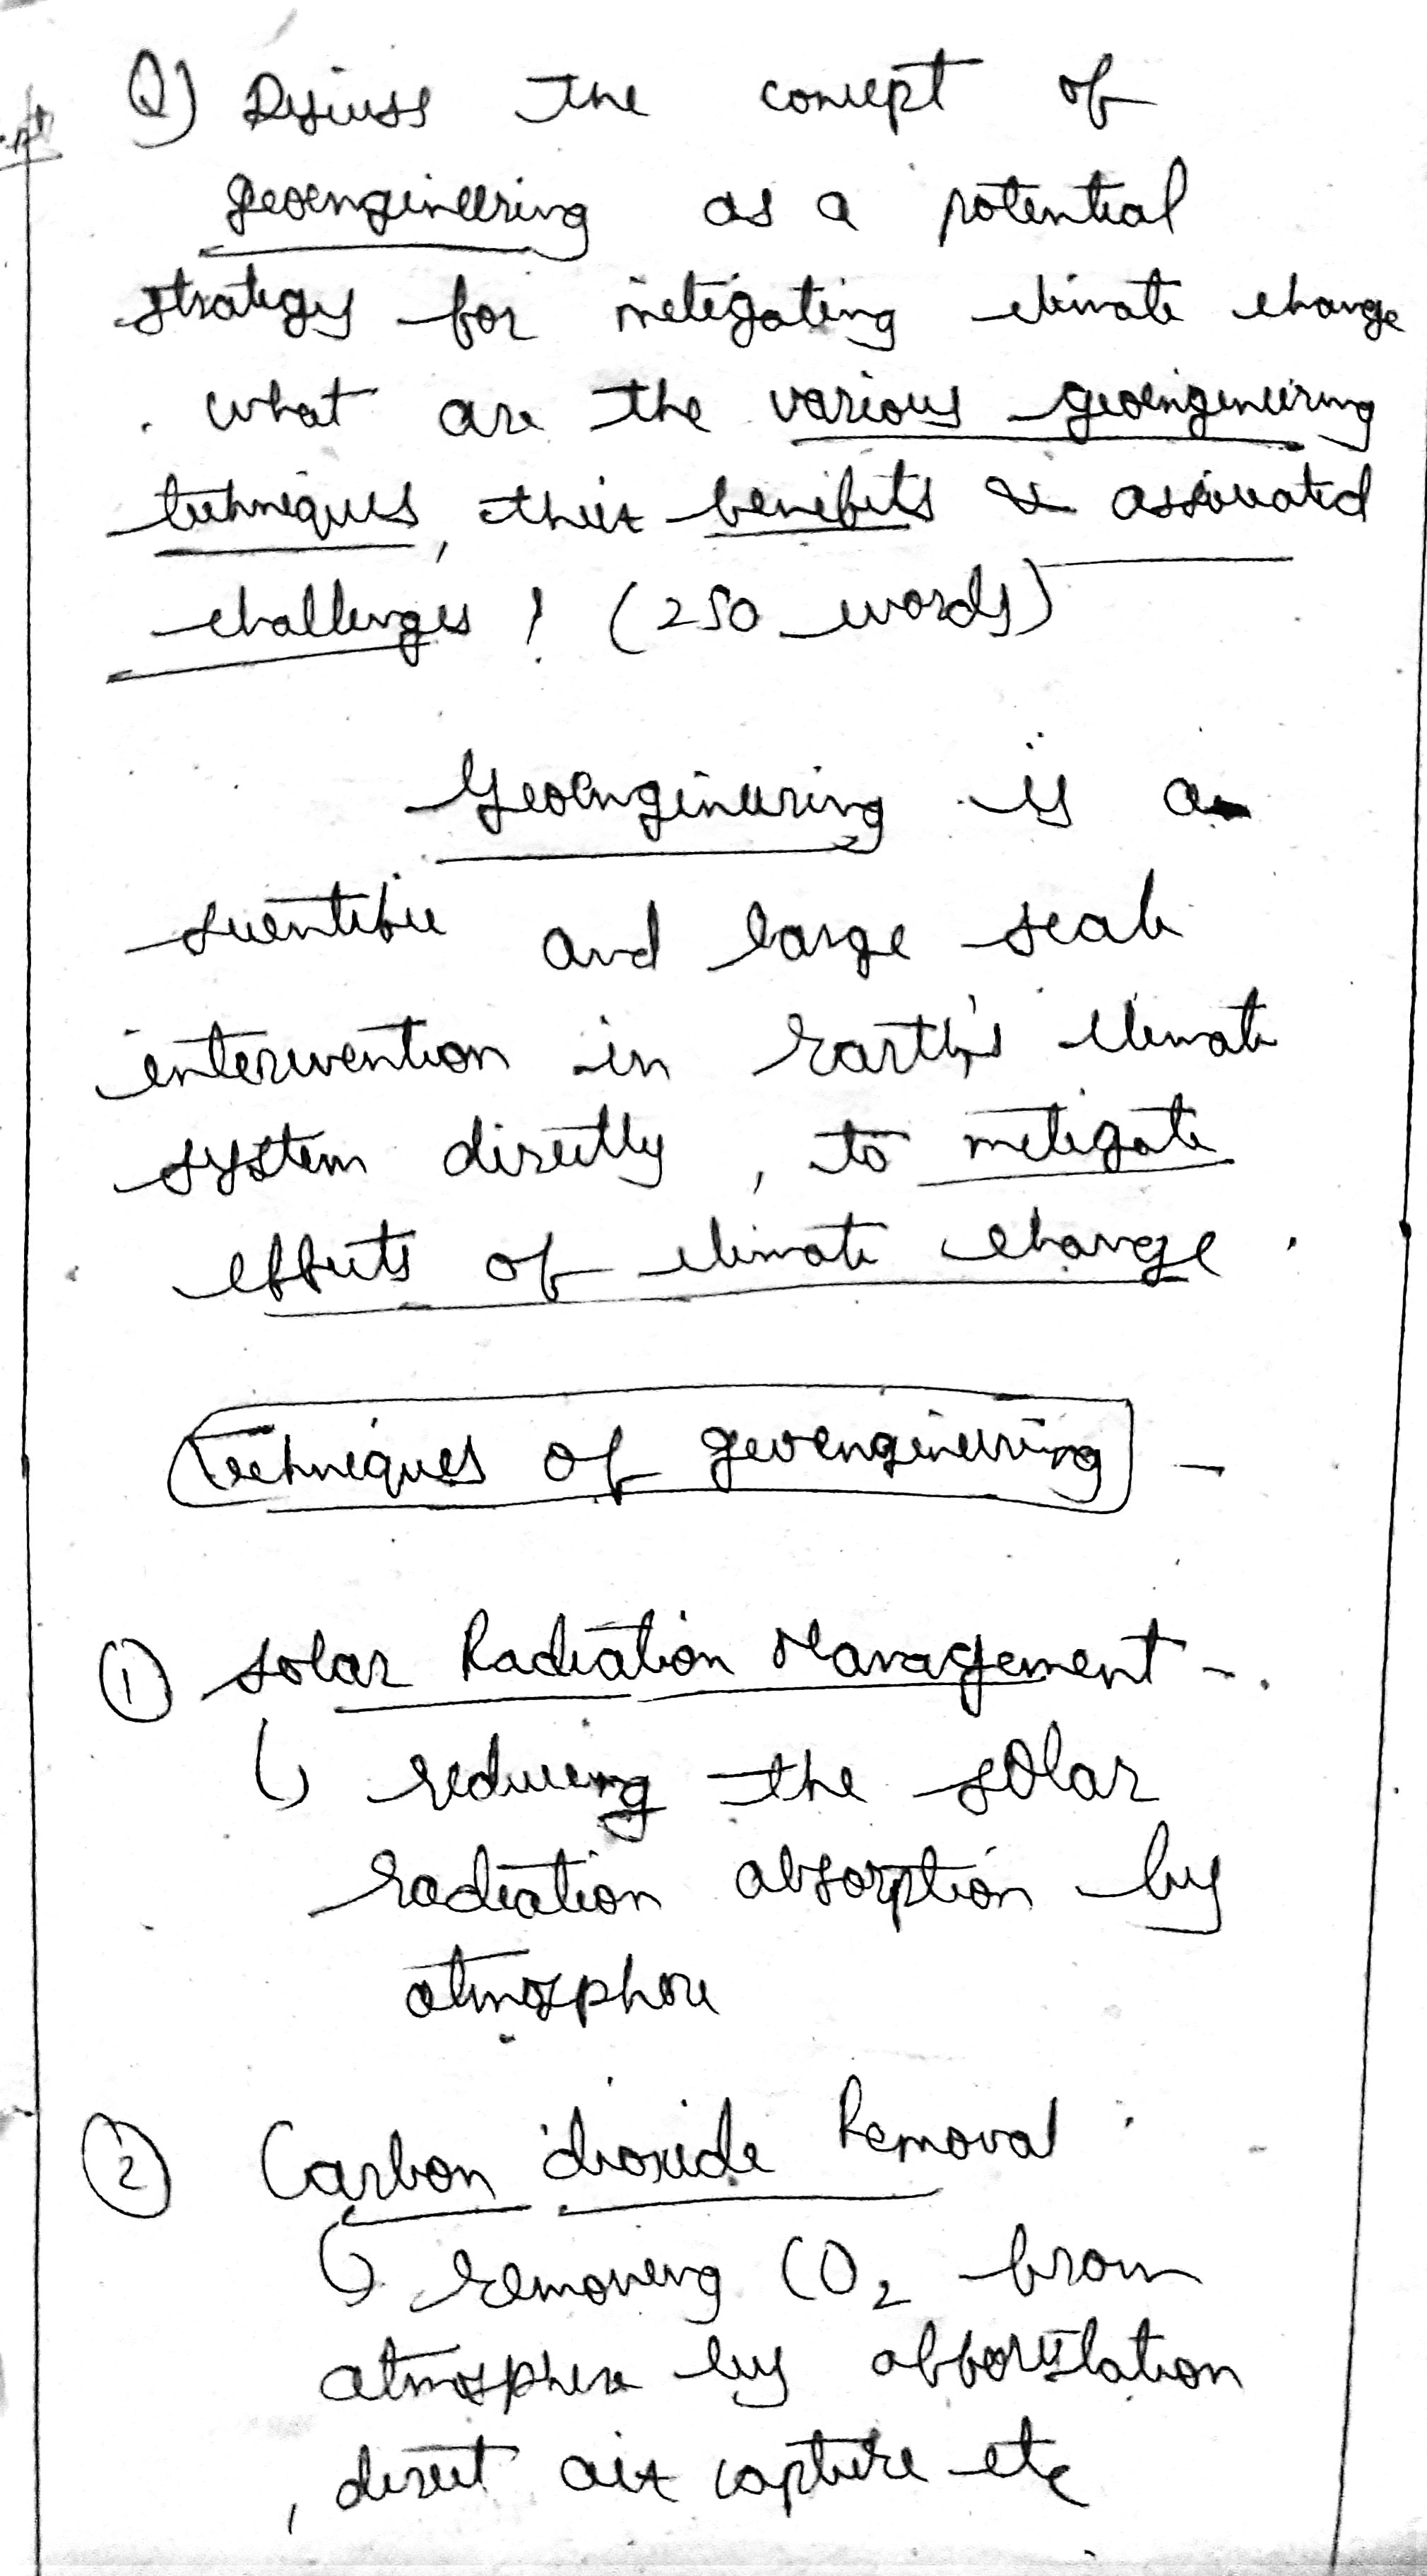 Q) Discuss the concept of
geoengineering as a potential
strategy for mitigating climate change
. what are the various geoengineering
techniques, their benefits & associated
challenges ? (250 words)
Geoengineering is a
scientific and large scale
intervention in Earth's climate
system directly, to mitigate
effects of climate change.
Techniques of geoengineering -
① Solar Radiation Management -
↳ reducing the solar
radiation absorption by
atmosphere
② Carbon dioxide Removal
↳ removing CO₂ from
atmosphere by afforestation
, direct air capture etc